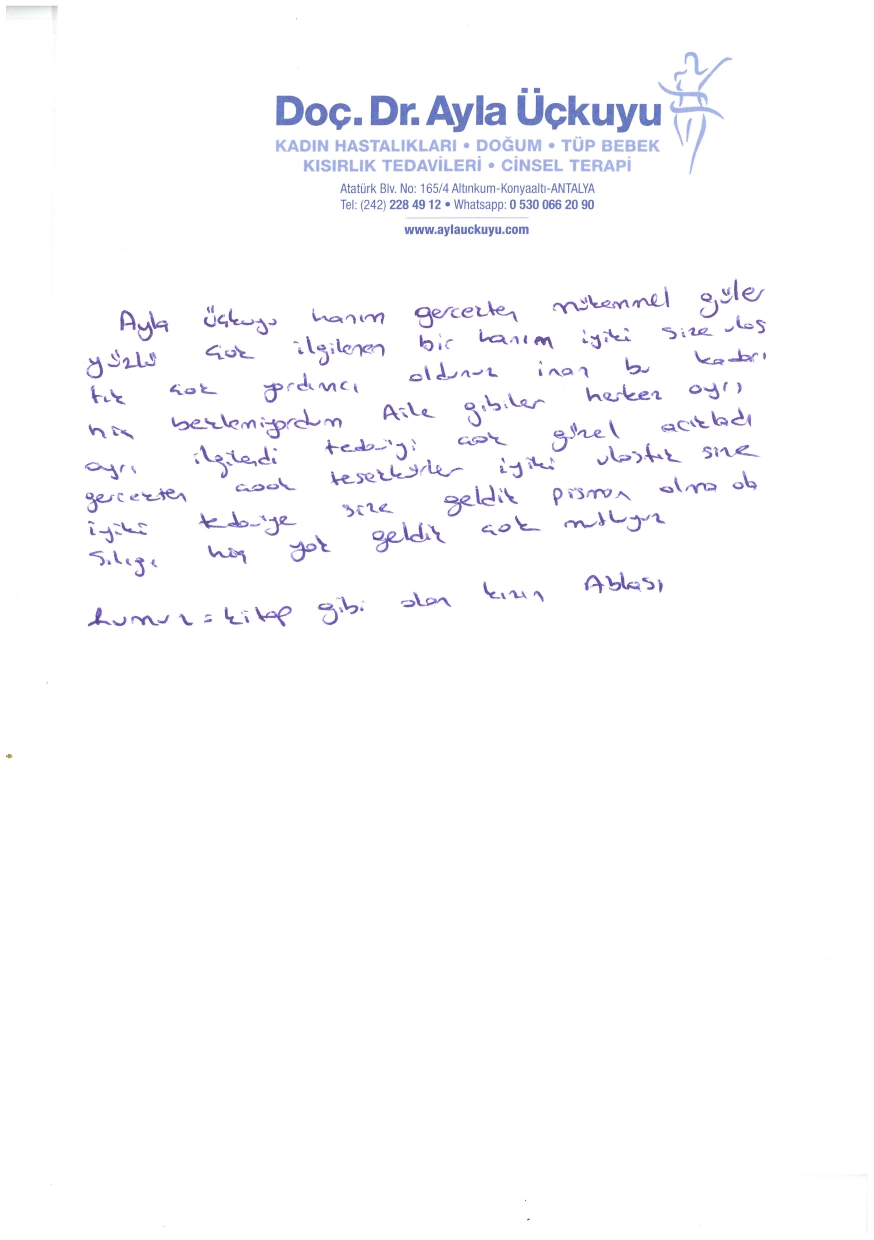 Doç. Dr. Ayla Üçkuyu
KADIN HASTALIKLARI • DOĞUM • TÜP BEBEK
KISIRLIK TEDAVİLERİ • CİNSEL TERAPİ
Atatürk Blv. No: 165/4 Altınkum-Konyaaltı-ANTALYA
Tel: (242) 228 49 12 • Whatsapp: 0 530 066 20 90
www.aylauckuyu.com
Ayla üçkuyu hanım gerçekten mükemmel güler
yüzlü çok ilgilenen bir hanım iyiki size ulaş
tık çok yardımcı oldunuz inan bu kadarı
hiç beklemiyordum Aile gibiler herkez ayrı
ayrı ilgilendi tedaviyi çok güzel acıkladı
gerçekten çook teşekkürler iyiki ulaştık size
iyiki tedaviye size geldik pişman olma ola
sılıgı hiç yok geldik çok mutluyuz
= kitap gibi olan kızın Ablası